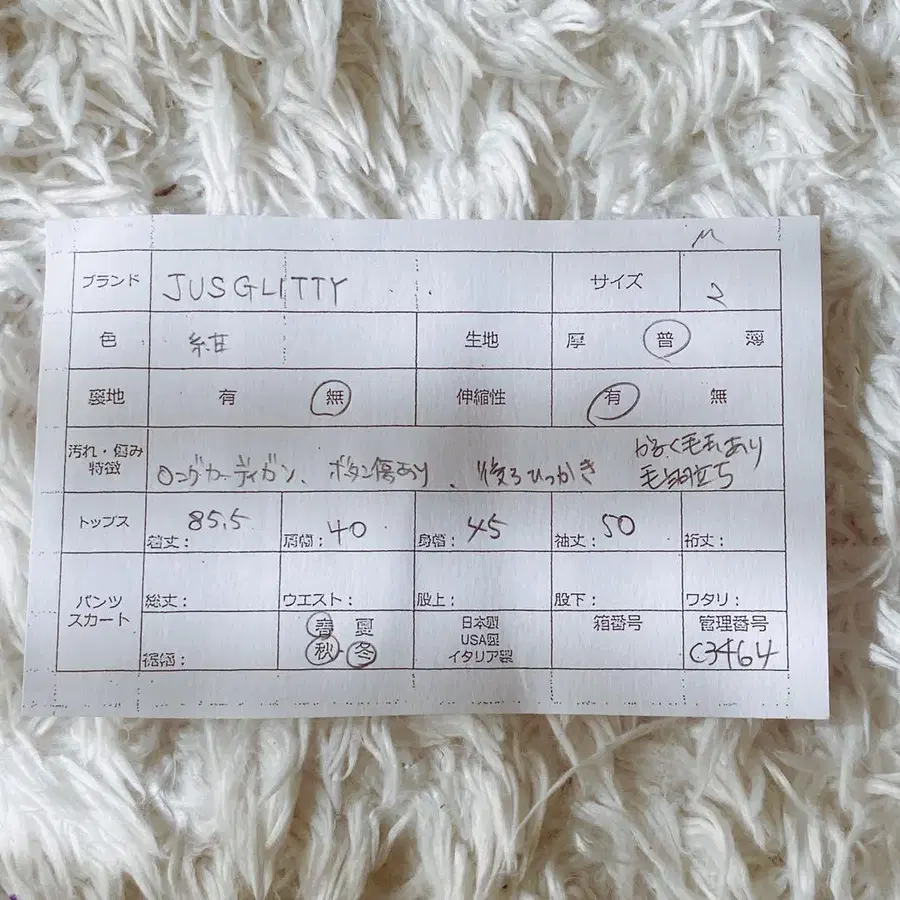 M
ブランド JUSGLITTY サイズ 2
色 紺 生地 厚 普 薄
裏地 有 無 伸縮性 有 無
汚れ・傷み
特徴
ロングカーディガン、ボタン傷あり、後ろひっかき
かるく毛玉あり
毛羽立ち
トップス 着丈: 85.5 肩幅: 40 身幅: 45 袖丈: 50 裄丈:
パンツ
スカート
総丈: ウエスト: 股上: 股下: ワタリ:
裾幅:
春 夏
秋・冬
日本製
USA製
イタリア製
箱番号
管理番号
C3464